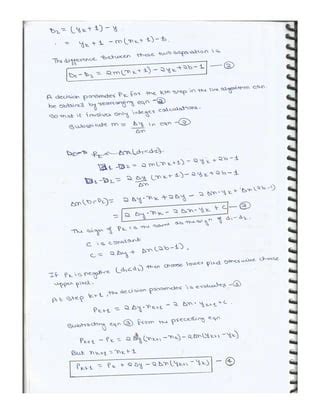 D2 = (yk+1) - y
= yk+1 - m(xk+1) - B.
The difference between those two separation is
D1-D2 = 2m(xk+1) - 2yk+2b-1 - ②
A decision parameter Pk for the kth step in the line algorithm can
be obtained by rearranging eqn - ②
so that it involves only integer calculations.
Substitute m = Δy/Δx in eqn - ②
Pk = Δx(d1-d2).
D1-D2 = 2m(xk+1) - 2yk+2b-1
D1-D2 = 2 Δy/Δx (xk+1) - 2yk+2b-1
Δx(D1-D2) = 2Δy·xk+2Δy - 2Δx·yk+Δx(2b-1)
= 2Δy·xk - 2Δx·yk + c - ③
The sign of Pk is the same as the sign of d1-d2.
C is constant
C = 2Δy + Δx(2b-1).
If Pk is negative (d1<d2) then choose lower pixel otherwise choose
upper pixel.
A step k+1, the decision parameter is evaluates - ③
Pk+1 = 2Δy·xk+1 - 2Δx·yk+1 + c.
Subtracting eqn ③ from the preceding eqn
Pk+1 - Pk = 2Δy(xk+1-xk) - 2Δx(yk+1-yk)
But xk+1 = xk+1
Pk+1 = Pk + 2Δy - 2Δx(yk+1-yk) - ④